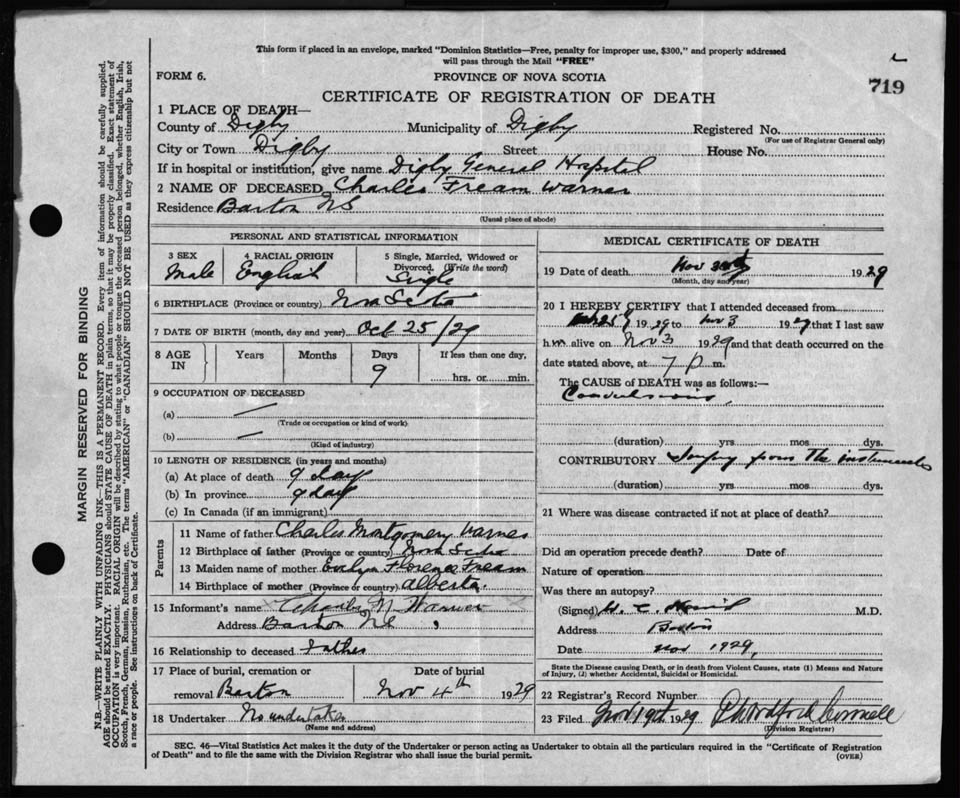 This form if placed in an envelope, marked "Dominion Statistics—Free, penalty for improper use, $300," and properly addressed
will pass through the Mail "FREE"
FORM 6.
PROVINCE OF NOVA SCOTIA
719
CERTIFICATE OF REGISTRATION OF DEATH
1 PLACE OF DEATH—
County of Digby Municipality of Digby Registered No.
(For use of Registrar General only)
City or Town Digby Street House No.
If in hospital or institution, give name Digby General Hospital
2 NAME OF DECEASED Charles Fream Warner
Residence Barton NS
(Usual place of abode)
PERSONAL AND STATISTICAL INFORMATION
3 SEX
Male
4 RACIAL ORIGIN
English
5 Single, Married, Widowed or
Divorced. (Write the word)
Single
6 BIRTHPLACE (Province or country) Nova Scotia
7 DATE OF BIRTH (month, day and year) Oct 25/29
8 AGE IN Years Months Days If less than one day,
9 hrs. or min.
9 OCCUPATION OF DECEASED
(a) —
(Trade or occupation or kind of work)
(b) —
(Kind of industry)
10 LENGTH OF RESIDENCE (in years and months)
(a) At place of death 9 day
(b) In province 9 day
(c) In Canada (if an immigrant)
Parents
11 Name of father Charles Montgomery Warner
12 Birthplace of father (Province or country) Nova Scotia
13 Maiden name of mother Evelyn Florence Fream
14 Birthplace of mother (Province or country) Alberta
15 Informant's name Charles M Warner
Address Barton NS
16 Relationship to deceased Father
17 Place of burial, cremation or Date of burial
removal Barton Nov 4th 1929
18 Undertaker No undertaker
(Name and address)
MEDICAL CERTIFICATE OF DEATH
19 Date of death Nov 1929
(Month, day and year)
20 I HEREBY CERTIFY that I attended deceased from
1929 to Nov 3 1929 that I last saw
him alive on Nov 3 1929 and that death occurred on the
date stated above, at 7 p m.
The CAUSE of DEATH was as follows:—
Convulsions
(duration) yrs. mos. dys.
CONTRIBUTORY Injury from the instruments
(duration) yrs. mos. dys.
21 Where was disease contracted if not at place of death?
Did an operation precede death? Date of
Nature of operation
Was there an autopsy?
(Signed) M.D.
Address
Date Nov 1929
State the Disease causing Death, or in death from Violent Causes, state (1) Means and Nature
of Injury, (2) whether Accidental, Suicidal or Homicidal.
22 Registrar's Record Number
23 Filed Nov 19th 1929
(Division Registrar)
SEC. 46—Vital Statistics Act makes it the duty of the Undertaker or person acting as Undertaker to obtain all the particulars required in the "Certificate of Registration
of Death" and to file the same with the Division Registrar who shall issue the burial permit.
(OVER)
MARGIN RESERVED FOR BINDING
N.B.—WRITE PLAINLY WITH UNFADING INK—THIS IS A PERMANENT RECORD. Every item of information should be carefully supplied.
AGE should be stated EXACTLY. PHYSICIANS should STATE CAUSE OF DEATH in plain terms, so that it may be properly classified. Exact statement of
OCCUPATION is very important. RACIAL ORIGIN will be described by stating to what people or tongue the deceased person belonged, whether English, Irish,
Scotch, French, German, Russian, Ruthenian, etc. The terms "AMERICAN" or "CANADIAN" SHOULD NOT BE USED as they express citizenship but not
a race or people. See instructions on back of Certificate.